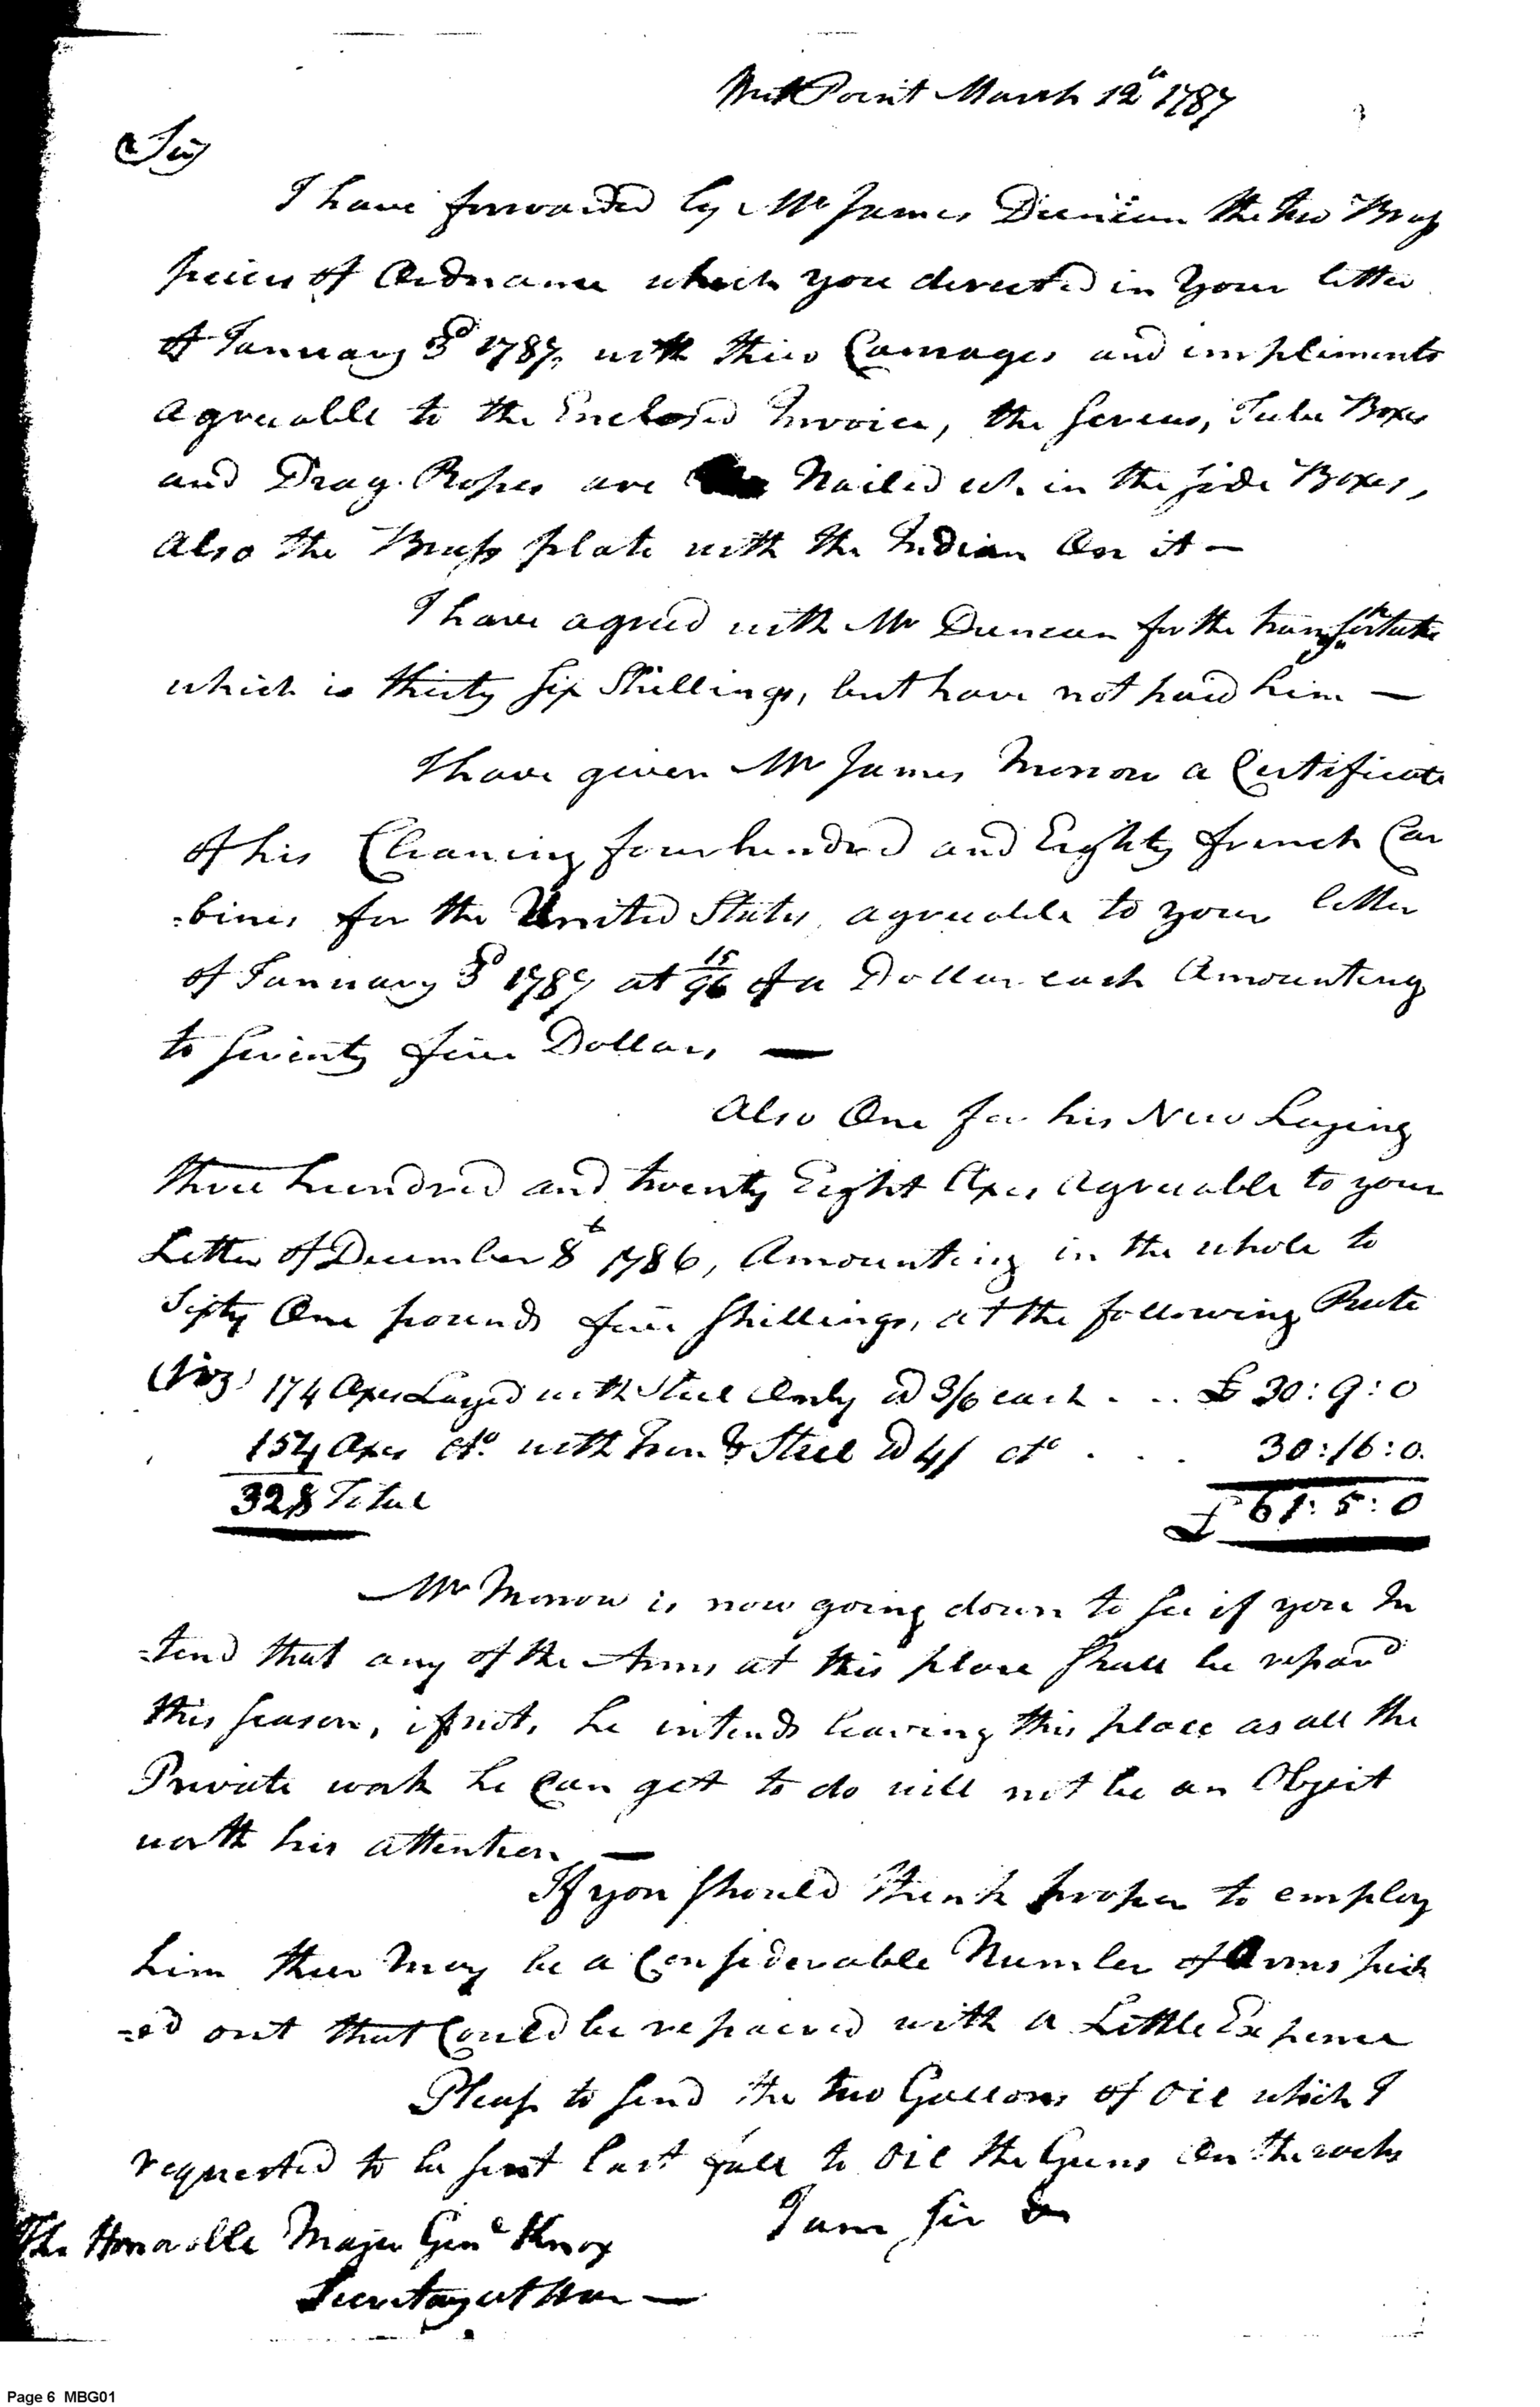 West Point March 12th 1787
Sir
I have forwarded by Mr James Duncan the two Brass
pieces of Ordnance which you directed in Your letter
of January 3d 1787, with their Carriages and impliments
agreeable to the Enclosed Invoice, the Screws, Tube Boxes
and Drag Ropes are Nailed up in the side Boxes,
also the Brass plate with the Indian On it —
I have agreed with Mr Duncan for the transportation
which is thirty six Shillings, but have not paid him —
I have given Mr James Morrow a Certificate
of his Cleaning four hundred and Eighty french Car
=bines for the United States, agreeable to your letter
of January 3d 1787 at 15/96 of a Dollar each Amounting
to seventy five Dollars —
Also One for his New Laying
three hundred and twenty Eight Axes agreeable to your
Letter of December 8th 1786, Amounting in the whole to
Sixty One pounds five Shillings, at the following Rate
(Viz) 174 Axes Layed with Steel Only @ 3/6 each . . . £ 30:9:0
154 Axes do. with Iron & Steel @ 4/ do . . . 30:16:0.
328 Total £ 61:5:0
Mr Morrow is now going down to see if you In
=tend that any of the Arms at this place shall be repaird
this season, if not, he intends leaving this place as all the
Private work he Can get to do will not be an Object
worth his attention —
If you should think proper to employ
him there may be a Considerable Number of Arms pick
=ed out that Could be repaired with a Little Expence
Please to send the two Gallons of Oil which I
requested to be sent last fall to Oil the Guns On the racks
I am Sir &c
The Honorable Major Genl Knox
Secretary at War —
Page 6 MBG01